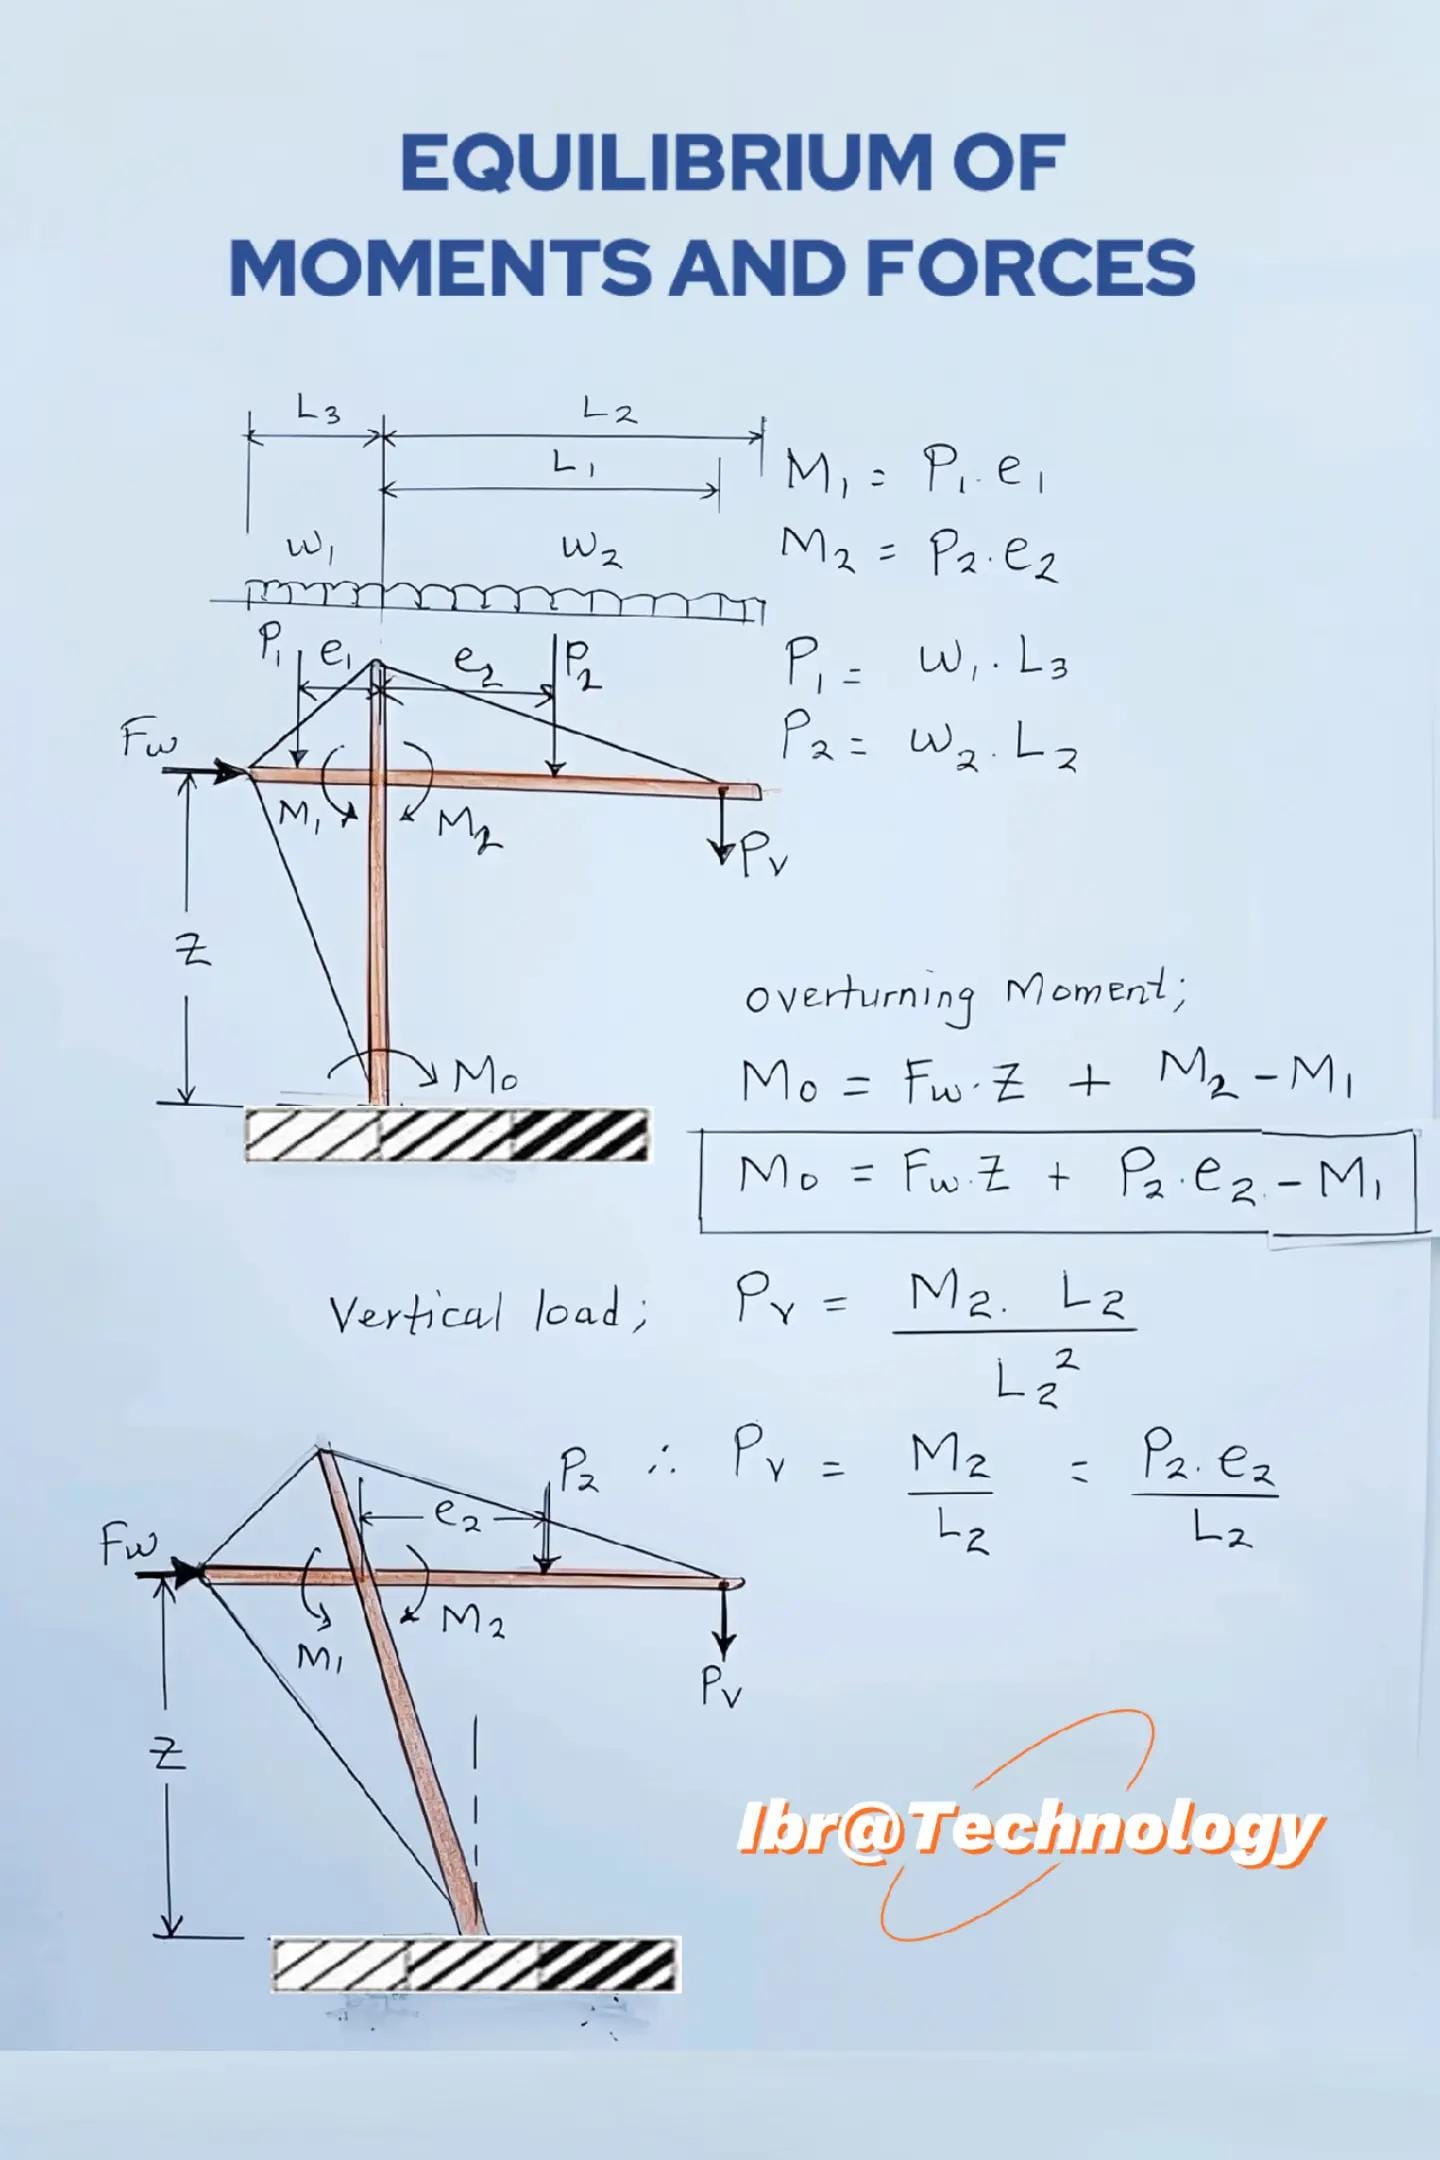 EQUILIBRIUM OF
MOMENTS AND FORCES
L3
L2
L1
w1
w2
M1 = P1.e1
M2 = P2.e2
P1 = w1.L3
P2 = w2.L2
P1
e1
e2
P2
Fw
M1
M2
Pv
Z
Mo
overturning Moment;
Mo = Fw.Z + M2 - M1
Mo = Fw.Z + P2.e2 - M1
Vertical load; Pv = M2. L2 / L2²
∴ Pv = M2 / L2 = P2.e2 / L2
P2
e2
Fw
M1
M2
Pv
Z
Ibr@Technology